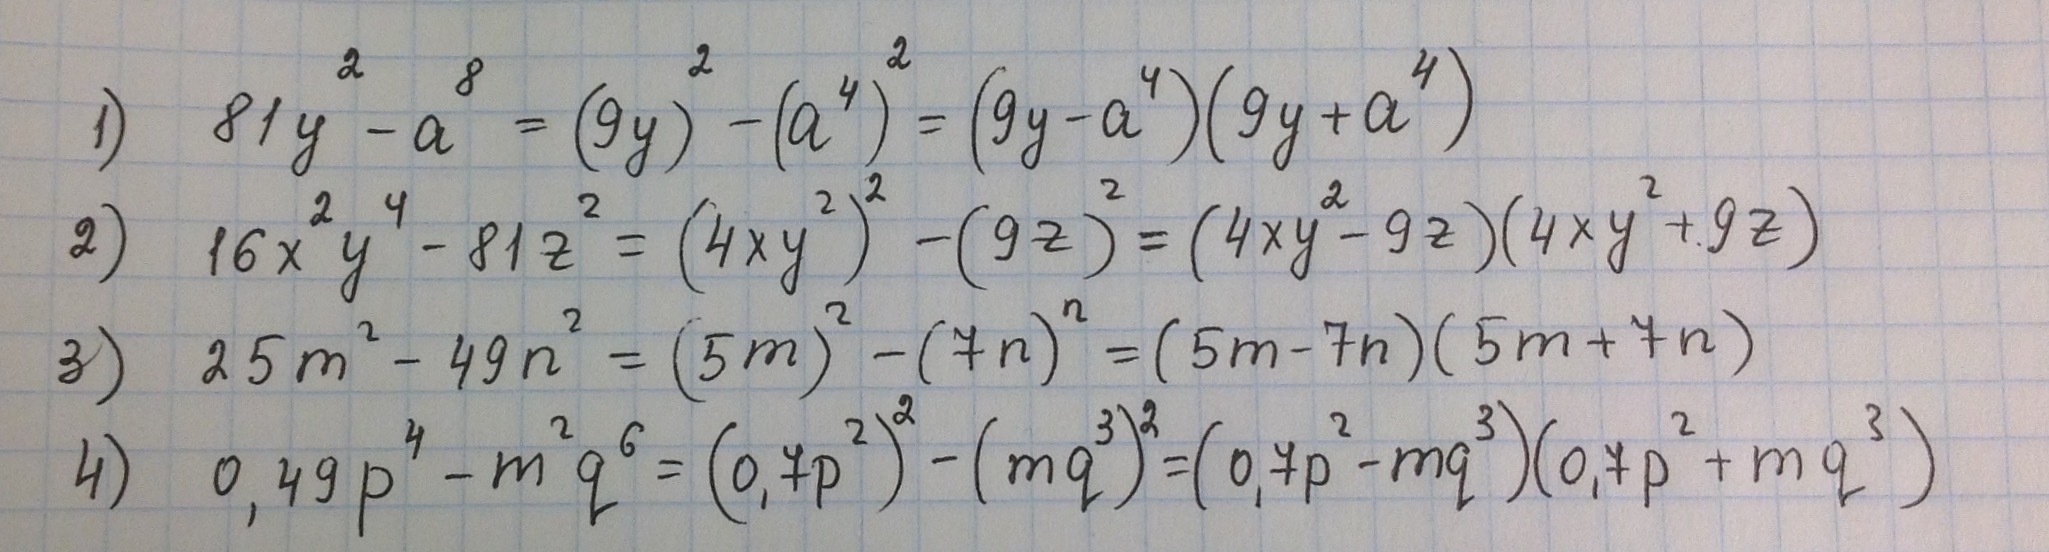 1) 81y² - a⁸ = (9y)² - (a⁴)² = (9y - a⁴)(9y + a⁴)
2) 16x²y⁴ - 81z² = (4xy²)² - (9z)² = (4xy² - 9z)(4xy² + 9z)
3) 25m² - 49n² = (5m)² - (7n)² = (5m - 7n)(5m + 7n)
4) 0,49p⁴ - m²q⁶ = (0,7p²)² - (mq³)² = (0,7p² - mq³)(0,7p² + mq³)